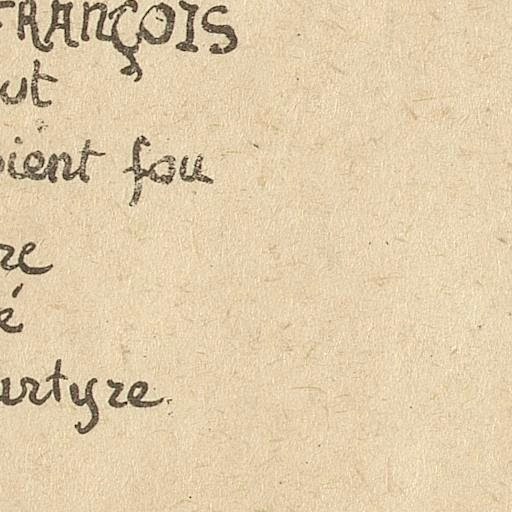 FRANÇOIS
ut
oient fou
re
é
artyre.